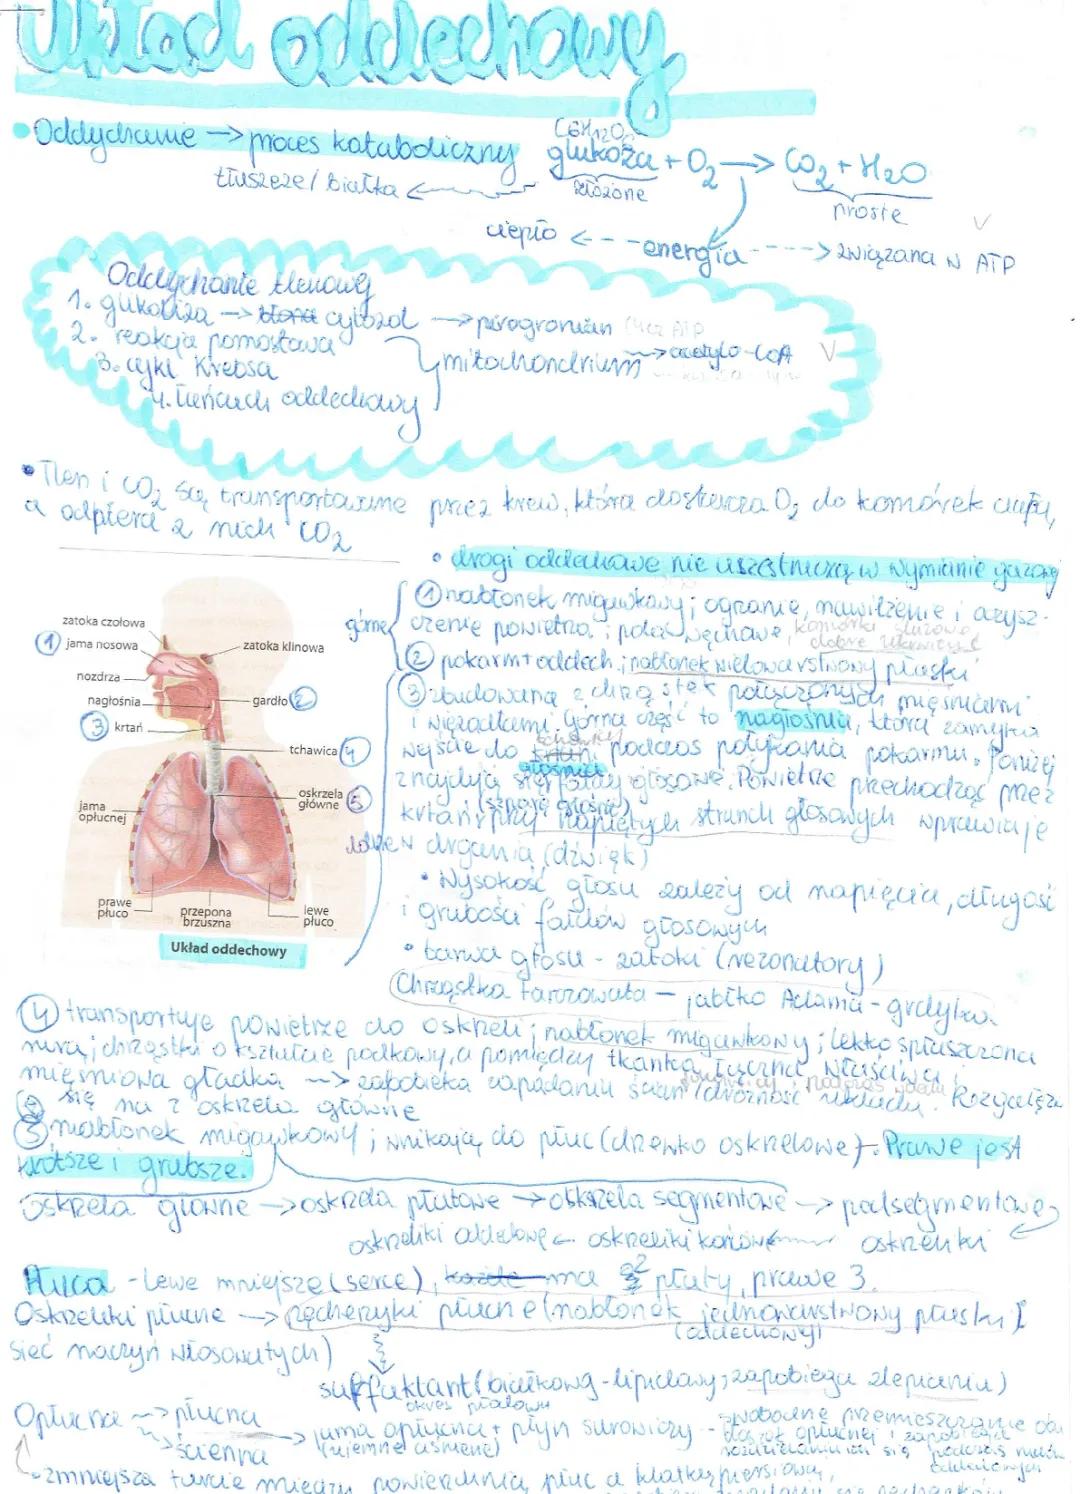 Układ oddechowy
• Oddychanie → proces kataboliczny
C6H12O6
glukoza + O2 → CO2 + H2O
tłuszcze/białka
złożone
proste
ciepło <- - - energia - - - -> związana w ATP
Oddychanie tlenowe
1. glikoliza → cytozol → pirogronian
2. reakcja pomostowa
3. cykl Krebsa
4. łańcuch oddechowy
mitochondrium → acetylo-CoA
• Tlen i CO2 są transportowane przez krew, która dostarcza O2 do komórek ciała,
a odbiera z nich CO2
• drogi oddechowe nie uczestniczą w wymianie gazowej
górne
① nabłonek migawkowy; ogrzanie, nawilżenie i oczysz-
czenie powietrza; pole węchowe, komórki śluzowe,
dobre ukrwienie
② pokarm + oddech; nabłonek wielowarstwowy płaski
③ zbudowana z chrząstek połączonych mięśniami
i więzadłami. Górna część to nagłośnia, która zamyka
wejście do krtani podczas połykania pokarmu. Poniżej
znajdują się fałdy głosowe. Powietrze przechodząc przez
krtań przy napiętych strunach głosowych wprawia je
(szparę głośni)
w drgania (dźwięk)
• Wysokość głosu zależy od napięcia, długości
i grubości fałdów głosowych
• barwa głosu - zatoki (rezonatory)
Chrząstka tarczowata - jabłko Adama - grdyka
zatoka czołowa
① jama nosowa
nozdrza
nagłośnia
③ krtań
jama
opłucnej
prawe
płuco
przepona
brzuszna
lewe
płuco
zatoka klinowa
gardło ②
tchawica ④
oskrzela
główne ⑤
Układ oddechowy
④ transportuje powietrze do oskrzeli; nabłonek migawkowy; lekko spłaszczona
rura; chrząstki o kształcie podkowy, a pomiędzy tkanka łączna właściwa i
mięśniowa gładka → zapobieka zapadaniu ścian (drożność układu. Rozgałęzia
się na 2 oskrzela główne
⑤ nabłonek migawkowy; wnikają do płuc (drzewko oskrzelowe). Prawe jest
krótsze i grubsze.
oskrzela główne → oskrzela płatowe → oskrzela segmentowe → podsegmentowe
oskrzeliki oddechowe ← oskrzeliki końcowe ← oskrzeliki
Płuca - lewe mniejsze (serce), każde ma 2 płaty, prawe 3.
Oskrzeliki płucne → pęcherzyki płucne (nabłonek jednowarstwowy płaski I
(oddechowy)
sieć naczyń włosowatych)
surfaktant (białkowo-lipidowy; zapobiega zlepianiu)
okres płodowy
Opłucna → płucna
→ ścienna
→ jama opłucna + płyn surowiczy - swobodne przemieszczanie obu
(ujemne ciśnienie)
zmniejsza tarcie między powierzchnią płuc a klatką piersiową,